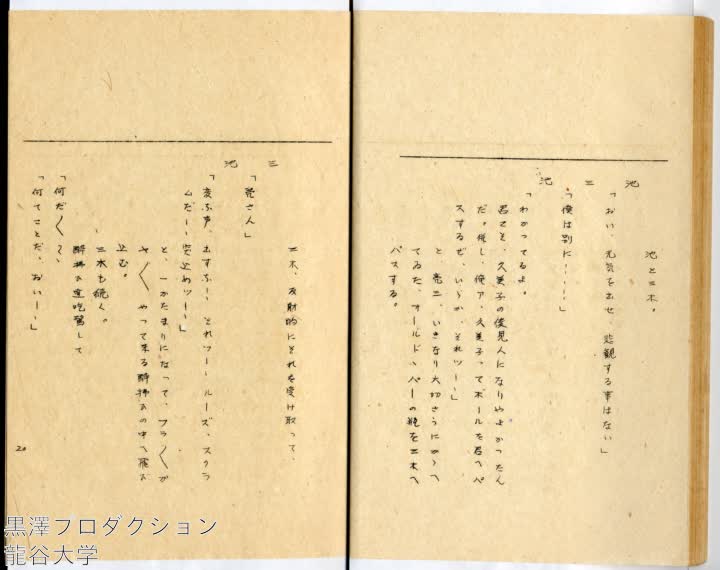 池と三木。
池「おい、元気を出せ 悲観する事はない」
三「僕は別に……」
池「わかってるよ。
君こそ、久美子の後見人になりやよかったん
だ。よし、俺ア、久美子ってボールを君へパ
スするぜ、いゝか、それツー、」
と 亮三、いきなり大切さうにかゝへ
てゐた、オールド、パーの瓶を三木へ
パスする。
三木、反射的にそれを受け取って、
三「亮さん」
池「変な声、出すなー、それツー ルーズ、スクラ
ムだー、突込めツー、」
と、一かたまりになって、フラ〱が
や〱やって来る酔拂ひの中へ飛び
込む。
三木も続く。
酔拂ひ達吃驚して
「何だ〱、
「何てことだ、おいー、」
20
黒澤プロダクション
龍谷大学